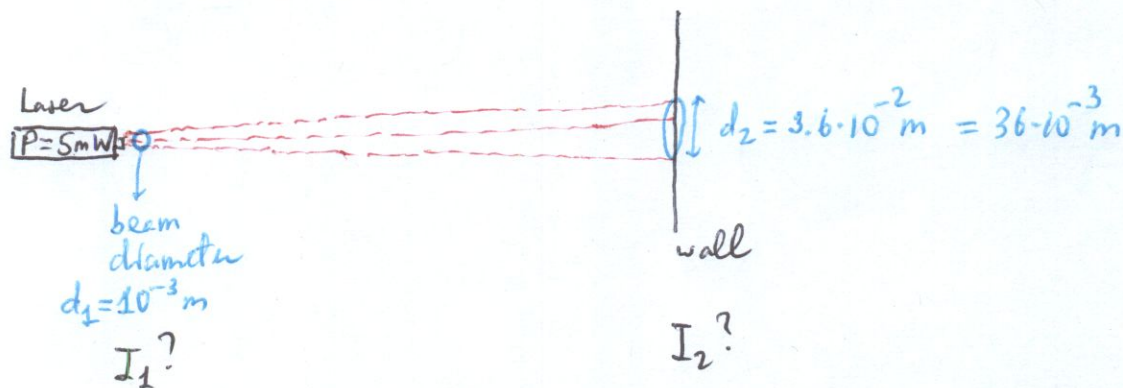 Laser
P=5mW
beam
diameter
d₁=10⁻³m
I₁?
d₂ = 3.6·10⁻² m = 36·10⁻³ m
wall
I₂?